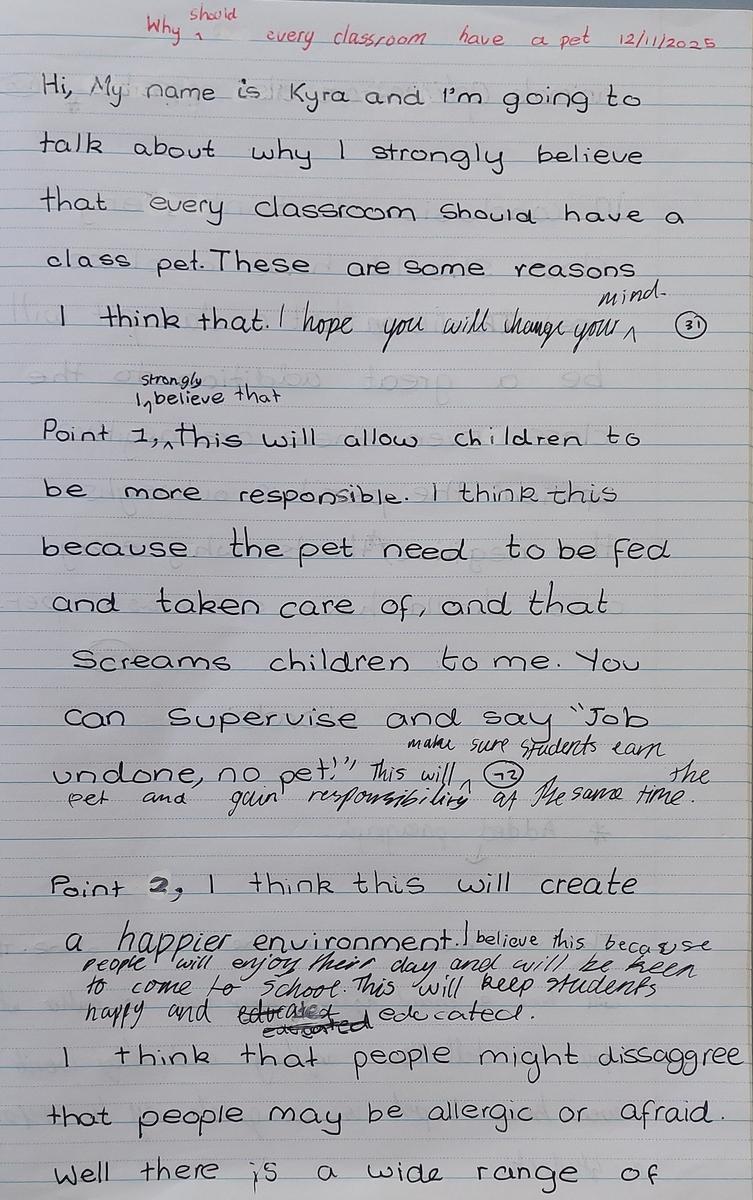 Why should every classroom have a pet 12/11/2025
Hi, My name is Kyra and I'm going to
talk about why I strongly believe
that every classroom should have a
class pet. These are some reasons
I think that. I hope you will change your mind. 31
Point 1, I strongly believe that This will allow children to
be more responsible. I think this
because the pet need to be fed
and taken care of, and that
Screams children to me. You
can supervise and say "Job
undone, no pet!" This will make sure students earn the
pet and gain responsibility at the same time.
Point 2, I think this will create
a happier environment. I believe this because
people will enjoy their day and will be keen
to come to school. This will keep students
happy and educated educated educated.
I think that people might dissaggree
that people may be allergic or afraid.
Well there is a wide range of